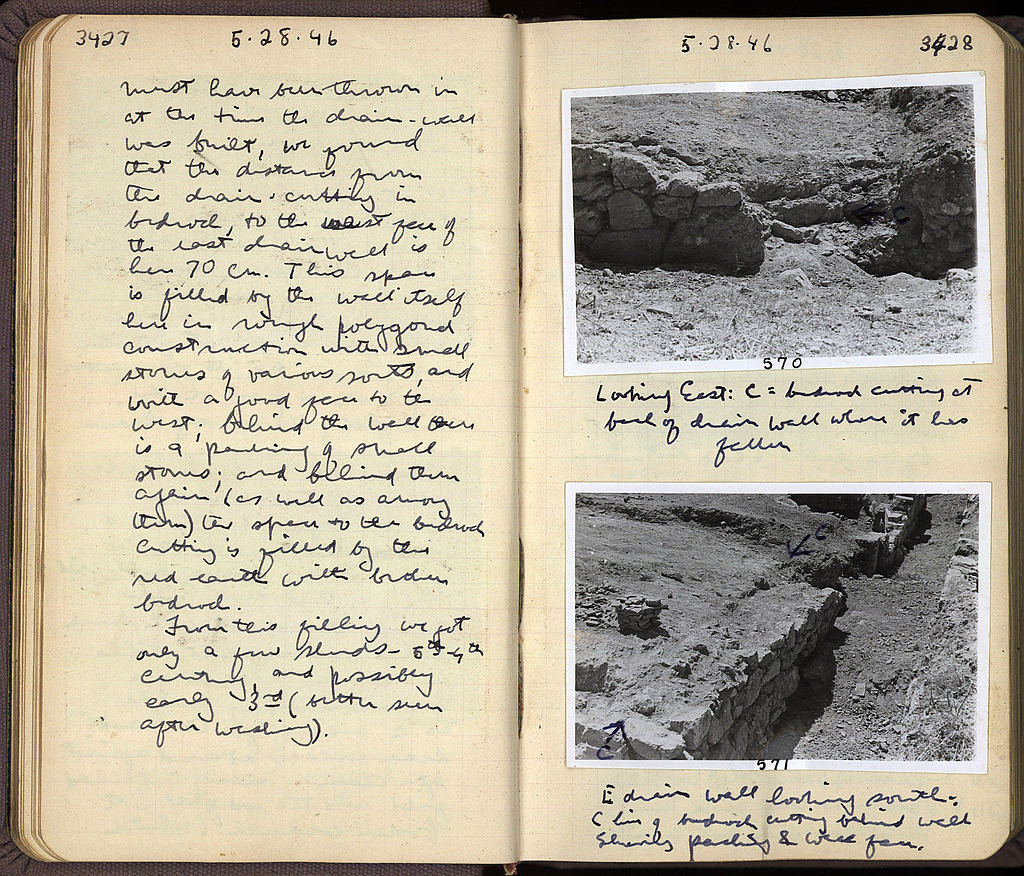 3427
5·28·46
must have been thrown in
at the time the drain-wall
was built, we found
that the distance from
the drain-cutting in
bedrock, to the west face of
the east drain wall is
here 70 cm. This space
is filled by the wall itself
here in rough polygonal
construction with small
stones of various sorts, and
with a good face to the
west; behind the wall there
is a packing of small
stones; and behind them
again (as well as among
them) the space to the bedrock
cutting is filled by the
red earth with broken
bedrock.
From this filling we got
only a few sherds - 5th-4th
century, and possibly
early 3rd (better seen
after washing).
5·28·46
3428
C
570
Looking East: C = bedrock cutting at
back of drain wall where it has
fallen
C
C
571
E drain wall looking south:
C line of bedrock cutting behind wall
Showing packing & wall face.